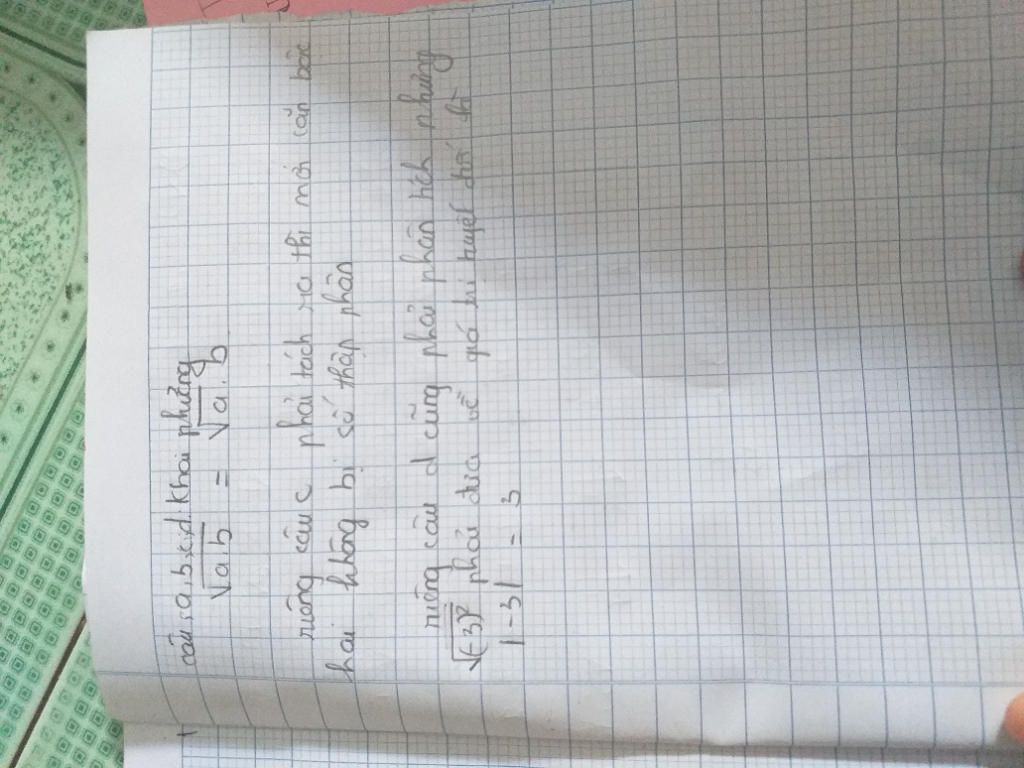 câu a,b,c,d khai phưởng
√a.b = √a . b
riêng câu c phải tách ra thì mới căn bậc
hai không bị số thập phân
riêng câu d cũng phải phân tích nhưng
√(-3)² phải đưa về giá trị tuyệt đối thì
|-3| = 3